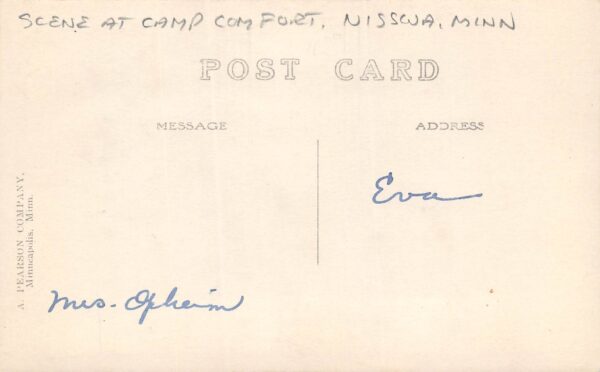 SCENE AT CAMP COMFORT, NISSWA, MINN
POST CARD
MESSAGE
ADDRESS
Eva
A. PEARSON COMPANY,
Minneapolis, Minn.
Mrs. Opheim